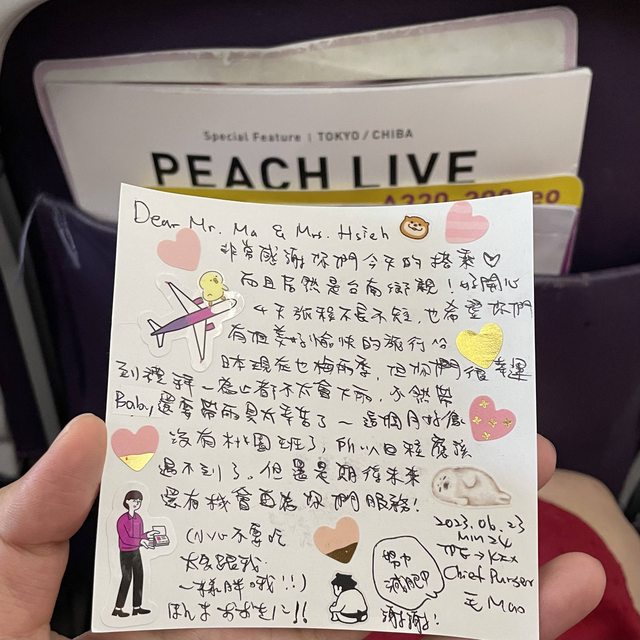 Special Feature | TOKYO / CHIBA
PEACH LIVE
A320-200 neo
Dear Mr. Ma & Mrs. Hsieh
非常感謝你們今天的搭乘♡
而且居然是台南鄉親！好開心
4天旅程不長不短，也希望你們
有個美好愉快的旅行
日本現在也梅雨季，但你們很幸運
到禮拜一為止都不太會下雨，不然帶
Baby還要帶雨具太辛苦了～這個月好像
沒有桃園班了，所以回程應該
遇不到了，但還是期待未來
還有機會再為你們服務！
(小心不要吃
太多跟我
一樣胖哦！！)
ほんまおおきに!!
努力
減肥中
謝謝！
2023.06.23
MM24
TPE→KIX
Chief Purser
毛 Mao